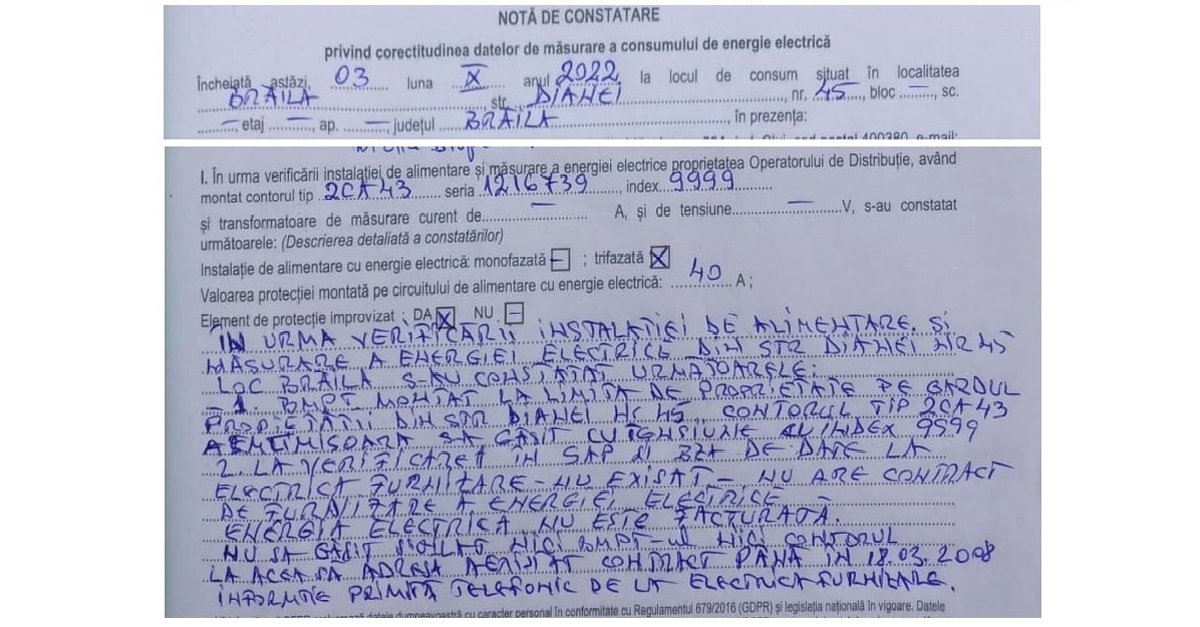 NOTĂ DE CONSTATARE
privind corectitudinea datelor de măsurare a consumului de energie electrică
Încheiată astăzi, 03 luna X anul 2022 la locul de consum situat în localitatea
BRĂILA, str. DIANEI, nr. 45, bloc —, sc.
—, etaj —, ap. —, județul BRĂILA, în prezența:
400380, e-mail:
I. În urma verificării instalației de alimentare și măsurare a energiei electrice proprietatea Operatorului de Distribuție, având
montat contorul tip 2CA43 seria 1216739, index 9999
și transformatoare de măsurare curent de — A, și de tensiune — V, s-au constatat
următoarele: (Descrierea detaliată a constatărilor)
Instalație de alimentare cu energie electrică: monofazată – ; trifazată X
Valoarea protecției montată pe circuitului de alimentare cu energie electrică: 40 A;
Element de protecție improvizat : DA X NU –
IN URMA VERIFICĂRII INSTALATIEI DE ALIMENTARE SI
MĂSURARE A ENERGIEI ELECTRICE DIN STR DIANEI NR 45
LOC BRĂILA S-AU CONSTATAT URMATOARELE:
– 1. BMPT MONTAT LA LIMITA DE PROPRIETATE PE GARDUL
PROPIETATII DIN STR DIANEI Nr 45. CONTORUL TIP 2CA43
AEMTIMISOARA SA GĂSIT CU TENSIUNE CU INDEX 9999
2. LA VERIFICAREA IN SAP SI BZA DE DATE LA
ELECTRICA FURNIZARE – NU EXISAT – NU ARE CONTRACT
DE FURNIZARE A ENERGIEI ELECTRICE –
ENERGIA ELECTRICA NU ESTE FACTURATĂ.
NU SA GĂSIT SIGILAT NICI BMPT-ul NICI CONTORUL
LA ACEASTA ADRESA A EXISTAT CONTRACT PÂNĂ IN 18.03.2008
INFORMTIE PRIMITĂ TELEFONIC DE LA ELECTRICA FURNIZARE.
datele dumneavoastră cu caracter personal în conformitate cu Regulamentul 679/2016 (GDPR) și legislația națională în vigoare. Datele